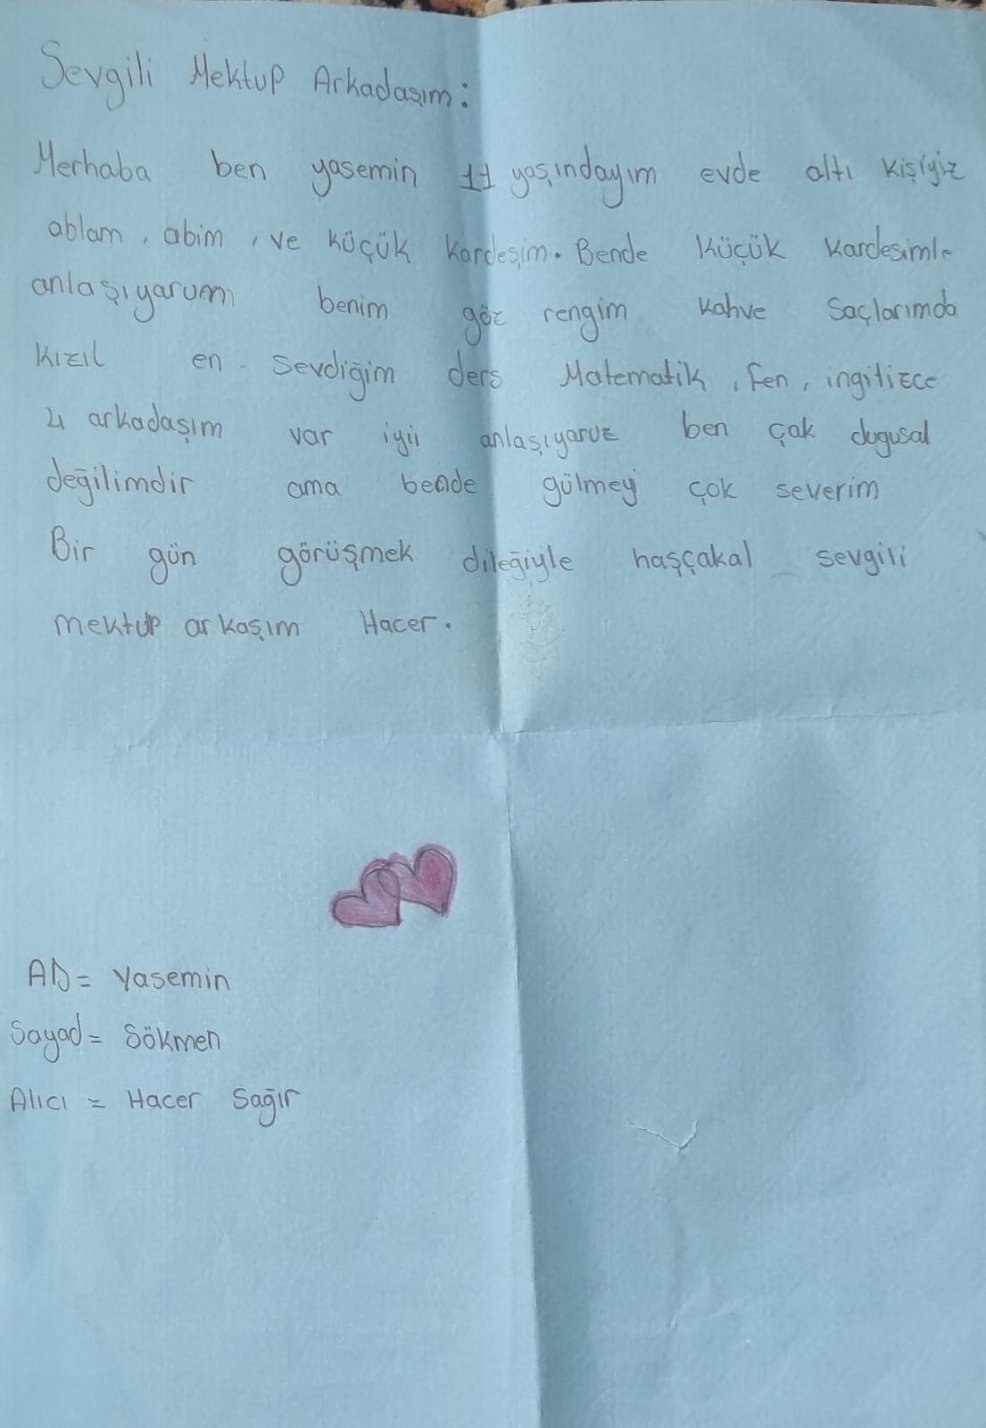 Sevgili Mektup Arkadaşım:
Merhaba ben yasemin 11 yaşındayım evde altı kişiyiz
ablam, abim, ve küçük kardeşim. Bende küçük kardesimle
anlaşıyarum benim göz rengim kahve saçlarımda
kızıl en sevdiğim ders Matematik, fen, ingilizce
4 arkadaşım var iyii anlaşıyaruz ben çak dugusal
değilimdir ama bende gülmey çok severim
Bir gün görüşmek dileğiyle haşçakal sevgili
mektup arkaşım Hacer.
AD= Yasemin
Sayad= Sökmen
Alıcı = Hacer Sağır